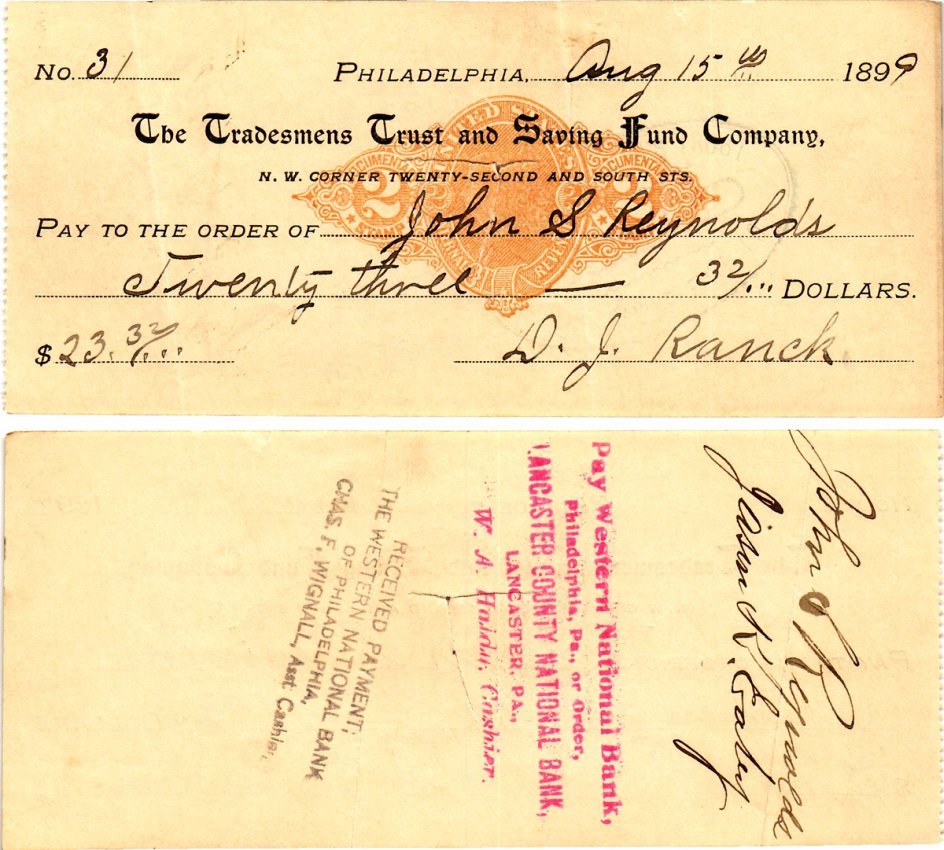 No. 31 Philadelphia, Aug 15 th 1899
The Tradesmens Trust and Saving Fund Company,
N. W. CORNER TWENTY-SECOND AND SOUTH STS.
PAY TO THE ORDER OF John S Reynolds
Twenty three — 32/... DOLLARS.
$ 23.32/...
D. J. Ranck
UNITED STATES
DOCUMENTARY
2
2
John S Reynolds
Pay Western National Bank,
Philadelphia, Pa., or Order,
LANCASTER COUNTY NATIONAL BANK,
LANCASTER, PA.,
W. A. Cashier.
RECEIVED PAYMENT,
THE WESTERN NATIONAL BANK
OF PHILADELPHIA,
CHAS. F. WIGNALL, Asst. Cashier